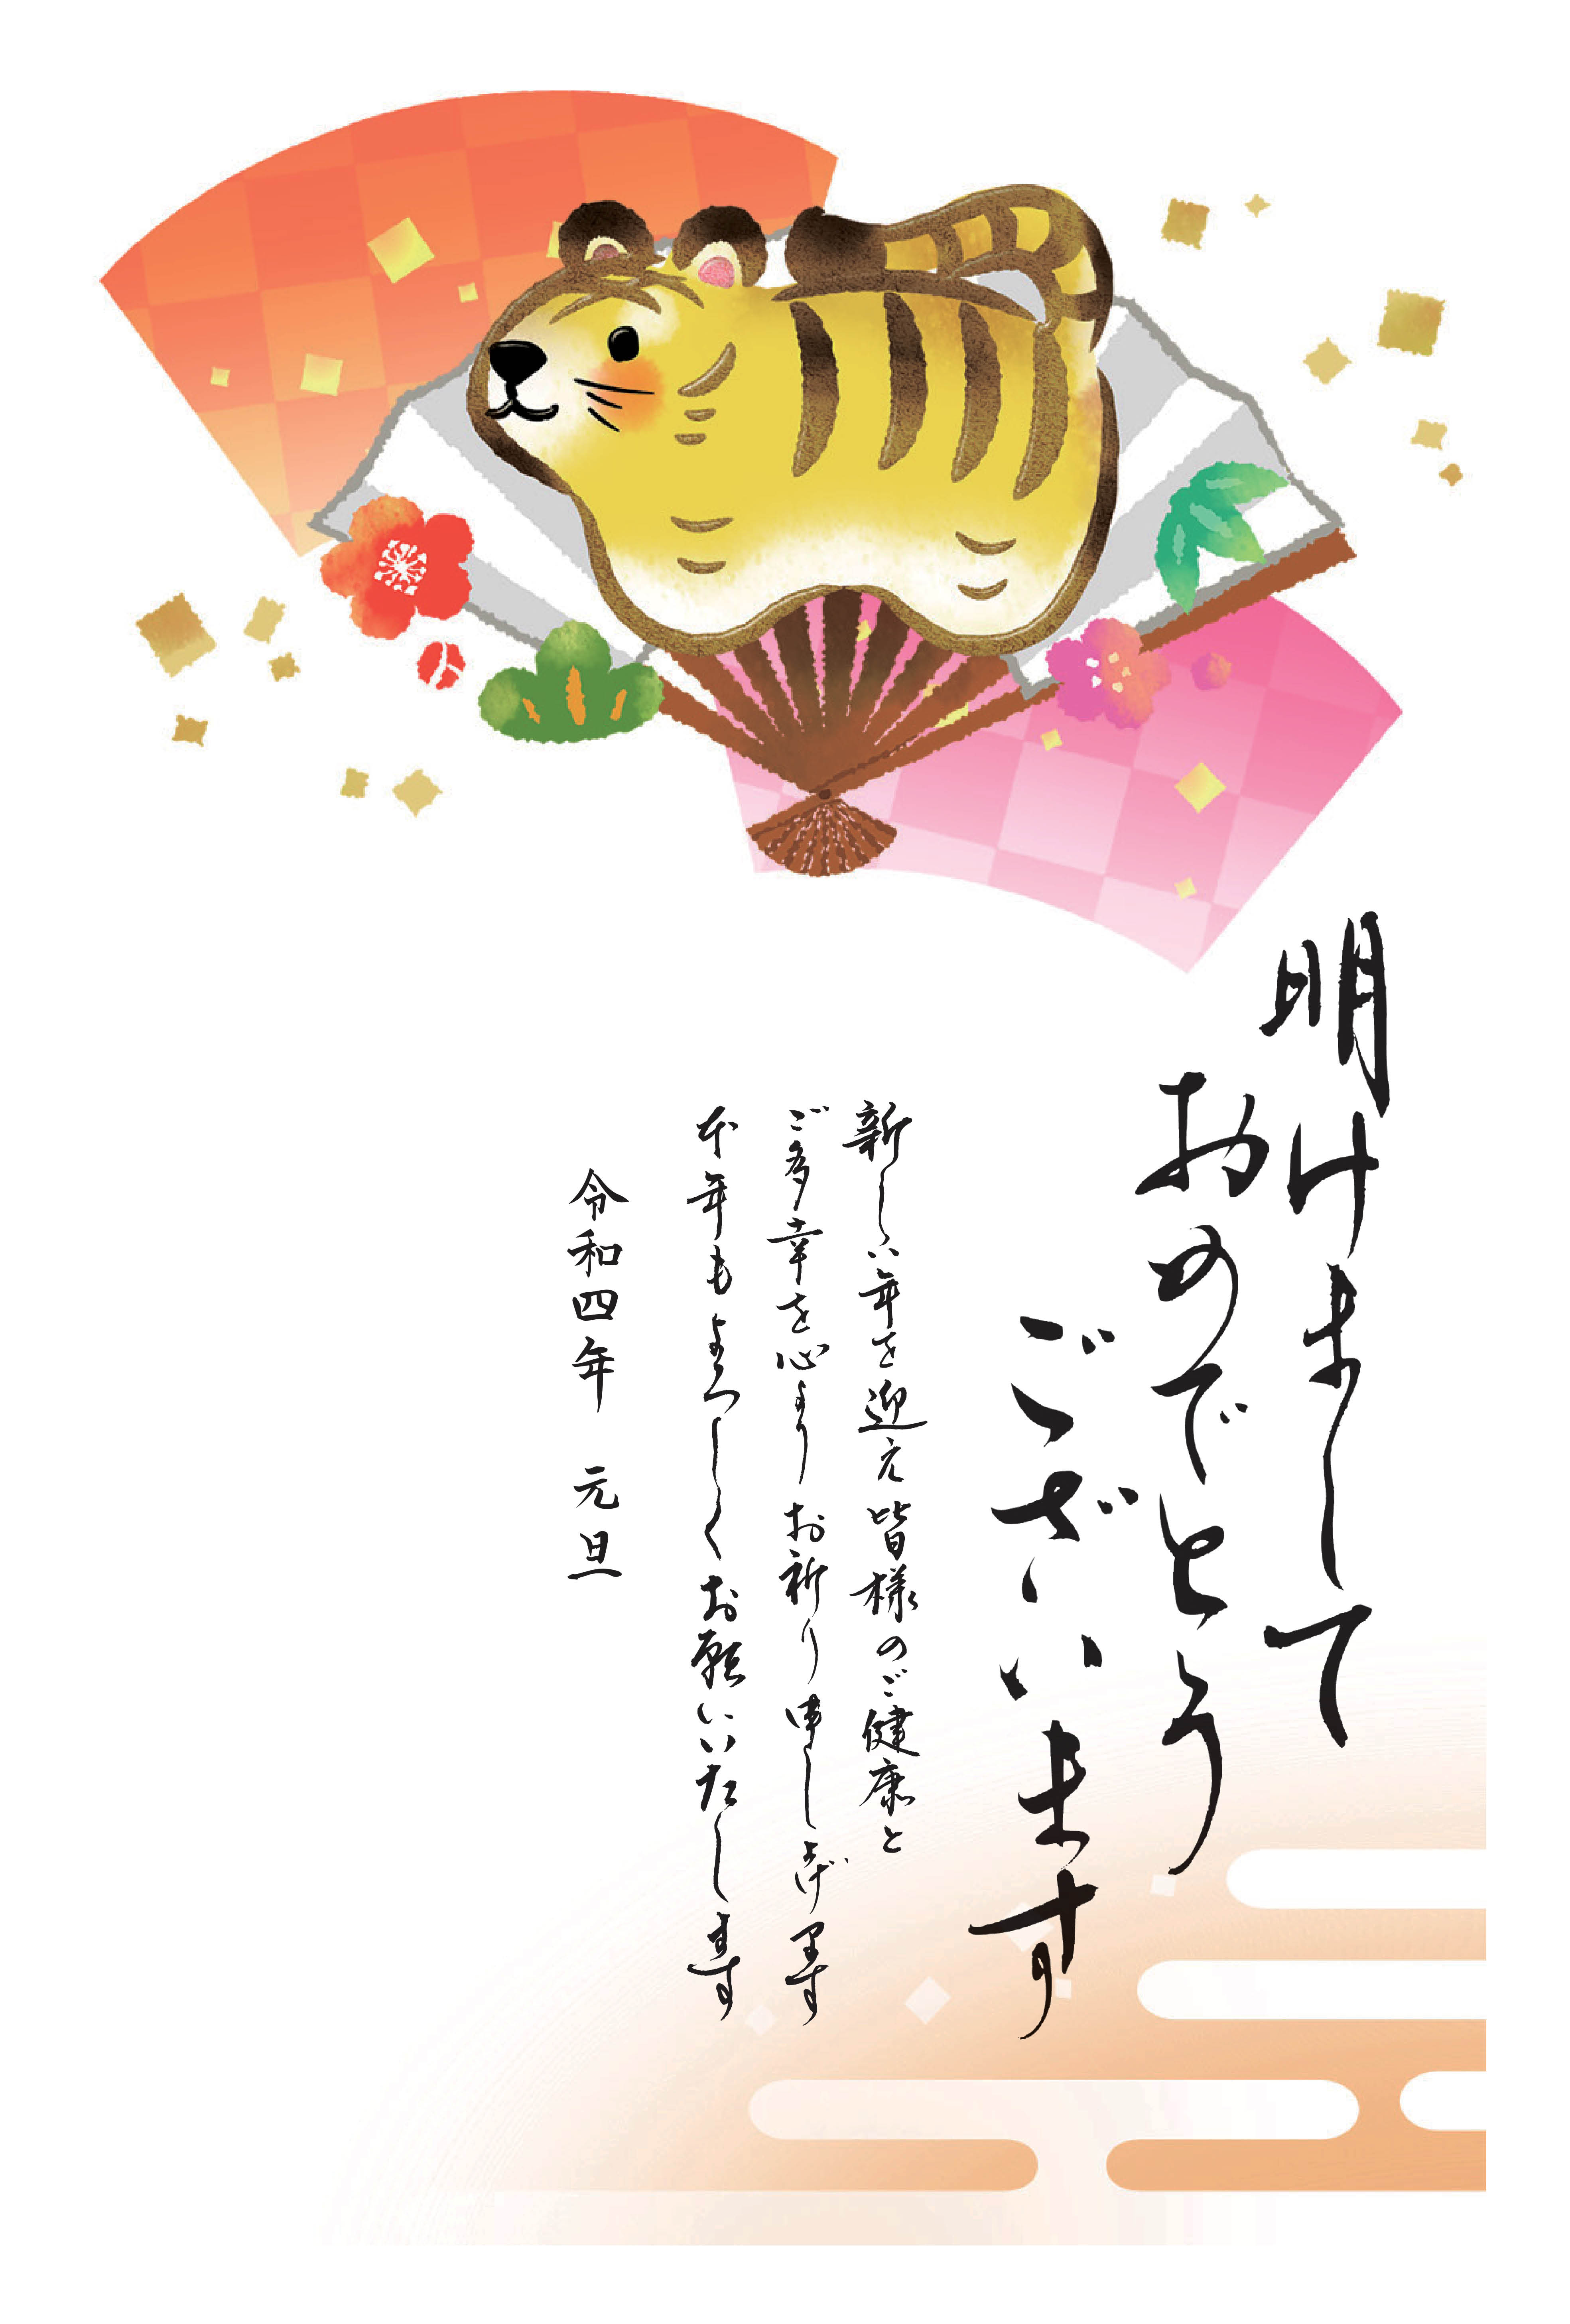 明けまして
おめでとう
ございます
新しい年を迎え皆様のご健康と
ご多幸を心よりお祈り申し上げます
本年もよろしくお願いいたします
令和四年 元旦